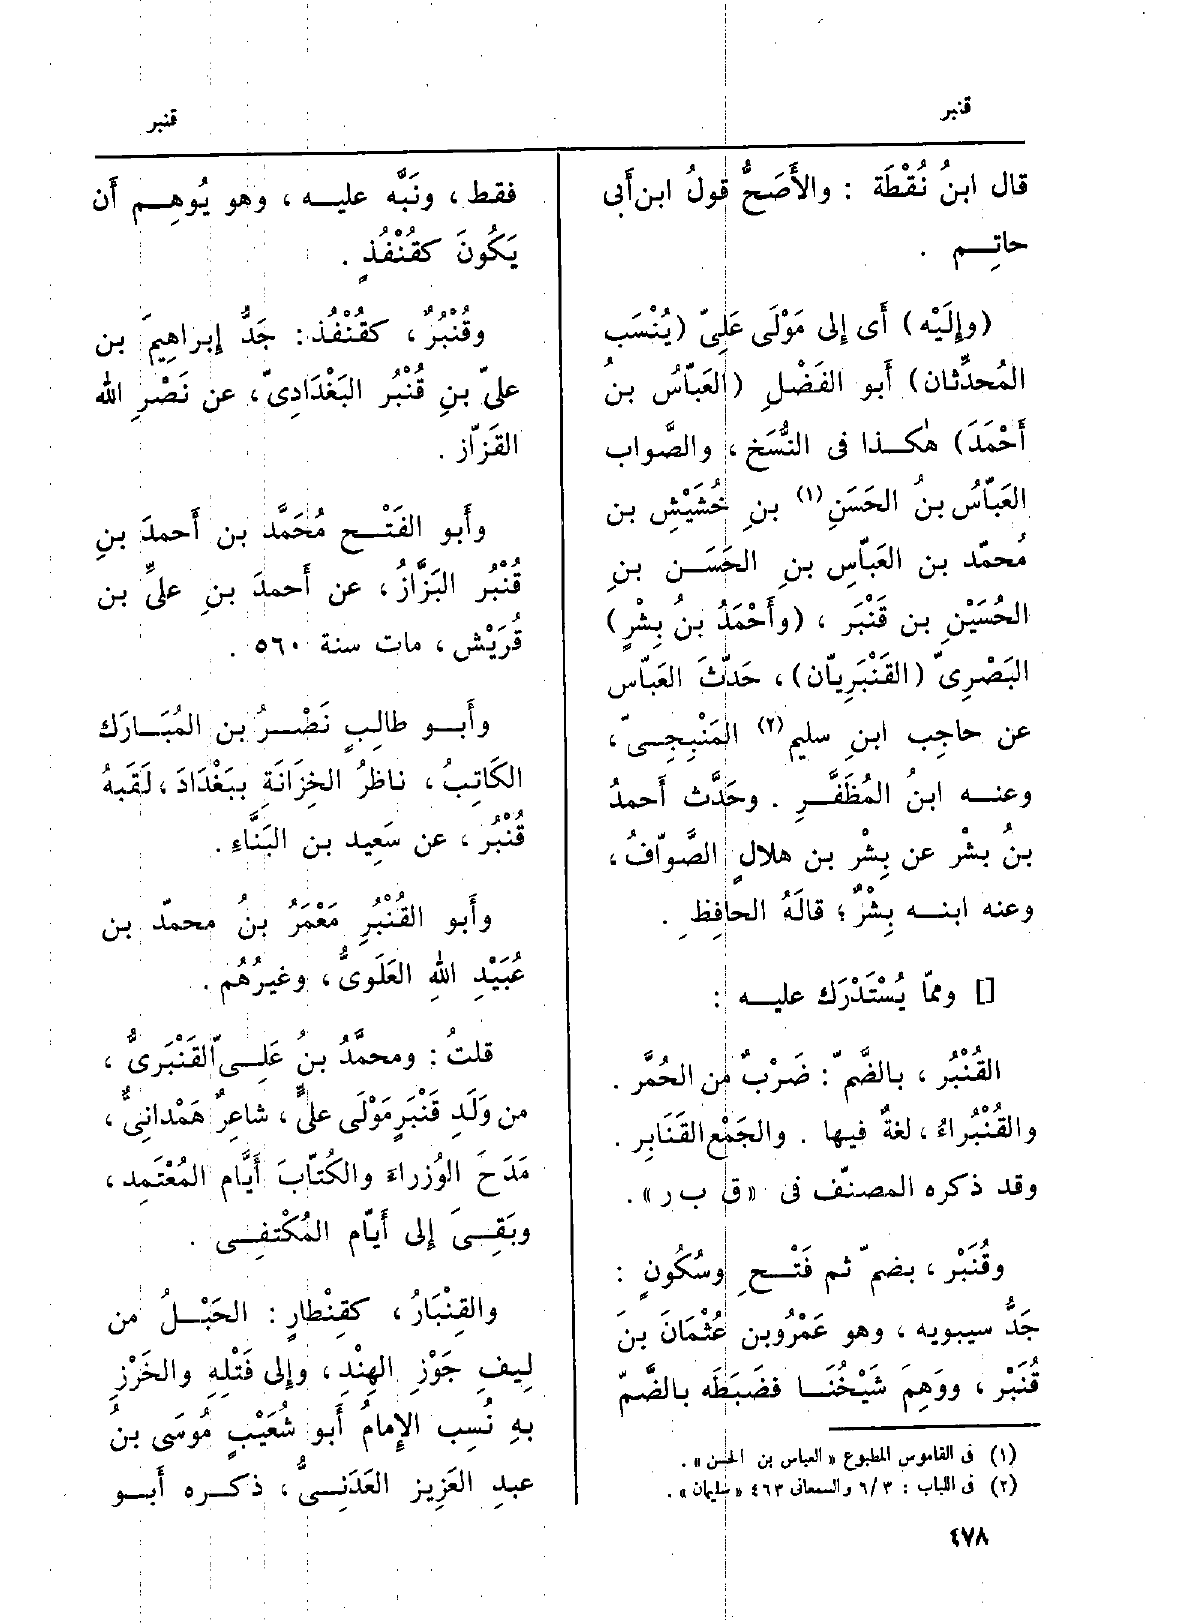 قنبر
قنبر
قال ابنُ نُقْطَة : والأَصَحُّ قولُ ابن أَبى
حاتِـم .
(وإِلَيْه) أَى إِلى مَوْلَى عَلِىّ (يُنْسَب
المُحدِّثان) أَبو الفَضْلِ (العَبّاسُ بنُ
أَحْمَدَ) هٰكـذا فى النُّسَخ ، والصَّواب
العَبّاسُ بنُ الحَسَنِ (١) بنِ خُشَيْشِ بن
مُحمّد بن العَبّاسِ بنِ الحَسَـن بنِ
الحُسَيْنِ بن قَنْبَر ، (وأَحْمَدُ بنُ بِشْرٍ)
البَصْرِىّ (القَنْبَرِيّان) ، حَدّثَ العَبّاس
عن حاجِب ابنِ سليم (٢) المَنْبِجِـىّ ،
وعنـه ابنُ المُظَفَّـرِ . وحَدَّث أَحمدُ
بنُ بشْر عن بِشْر بن هلالٍ الصَّوّافُ ،
وعنه ابنـه بِشْرٌ ؛ قالَهُ الحافِظ .
[] وممّا يُسْتَدْرَك عليـه :
القُنْبُر ، بـالضَّمّ : ضَرْبٌ من الحُمَّر .
والقُنْبُراءُ ، لغةٌ فيها . والجَمْع القَنَابِر .
وقد ذكره المصنّف فى «ق ب ر» .
وقُنَبْر ، بضمّ ثم فَتْـحِ وسُكُونٍ :
جَدُّ سيبويه ، وهو عَمْرُو بن عُثْمَانَ بنَ
قُنَبْر ، ووَهِمَ شَيْخُنَـا فضَبَطَه بـالضَّمّ
(١) فى القاموس المطبوع «العباس بن الحسن» .
(٢) فى اللباب : ٦/٣ والسمعانى ٤٦٣ «سليمان» .
فقط ، ونَبَّه عليـه ، وهو يُوهِـم أَن
يَكُونَ كقُنْفُذٍ .
وقُنْبُرٌ ، كقُنْفُذ : جَدُّ إِبراهِيمَ بن
علىّ بنِ قُنْبُر البَغْدَادِىّ ، عن نَصْرِ الله
القَزّاز .
وأَبو الفَتْـح مُحَمَّد بن أَحمدَ بنِ
قُنْبُر البَزَّازُ ، عن أَحمدَ بنِ علىٍّ بن
قُرَيْش ، مات سنة ٥٦٠ .
وأَبـو طالِبٍ نَصْـرُ بن المُبَـارَك
الكَاتِبُ ، ناظرُ الخِزَانَةِ ببَغْدَادَ ، لَقَبهُ
قُنْبُر ، عن سَعِيد بن البَنَّاءِ .
وأَبو القُنْبُرِ مَعْمَرُ بنُ محمّد بن
عُبَيْدِ اللهِ العَلَوِىُّ ، وغيرُهُم .
قلتُ : ومحمَّدُ بنُ عَلِـىّ القَنْبَرِىُّ ،
من وَلَدِ قَنْبَرٍ مَوْلَى علىٍّ ، شاعِرٌ هَمْدانىٌّ ،
مَدَحَ الوُزراءَ والكُتّابَ أَيَّام المُعْتَمِد ،
وبَقِـىَ إِلى أَيّام المُكْتفِـى .
والقِنْبَارُ ، كقِنْطارٍ : الحَبْـلُ من
لِيفِ جَوْزِ الهِنْدِ ، وإِلى فَتْلِهِ والخَرْزِ
بهِ نُسِب الإِمامُ أَبو شُعَيْبٍ مُوسَى بنُ
عبدِ العَزِيز العَدَنِـىُّ ، ذكـره أَبـو
٤٧٨